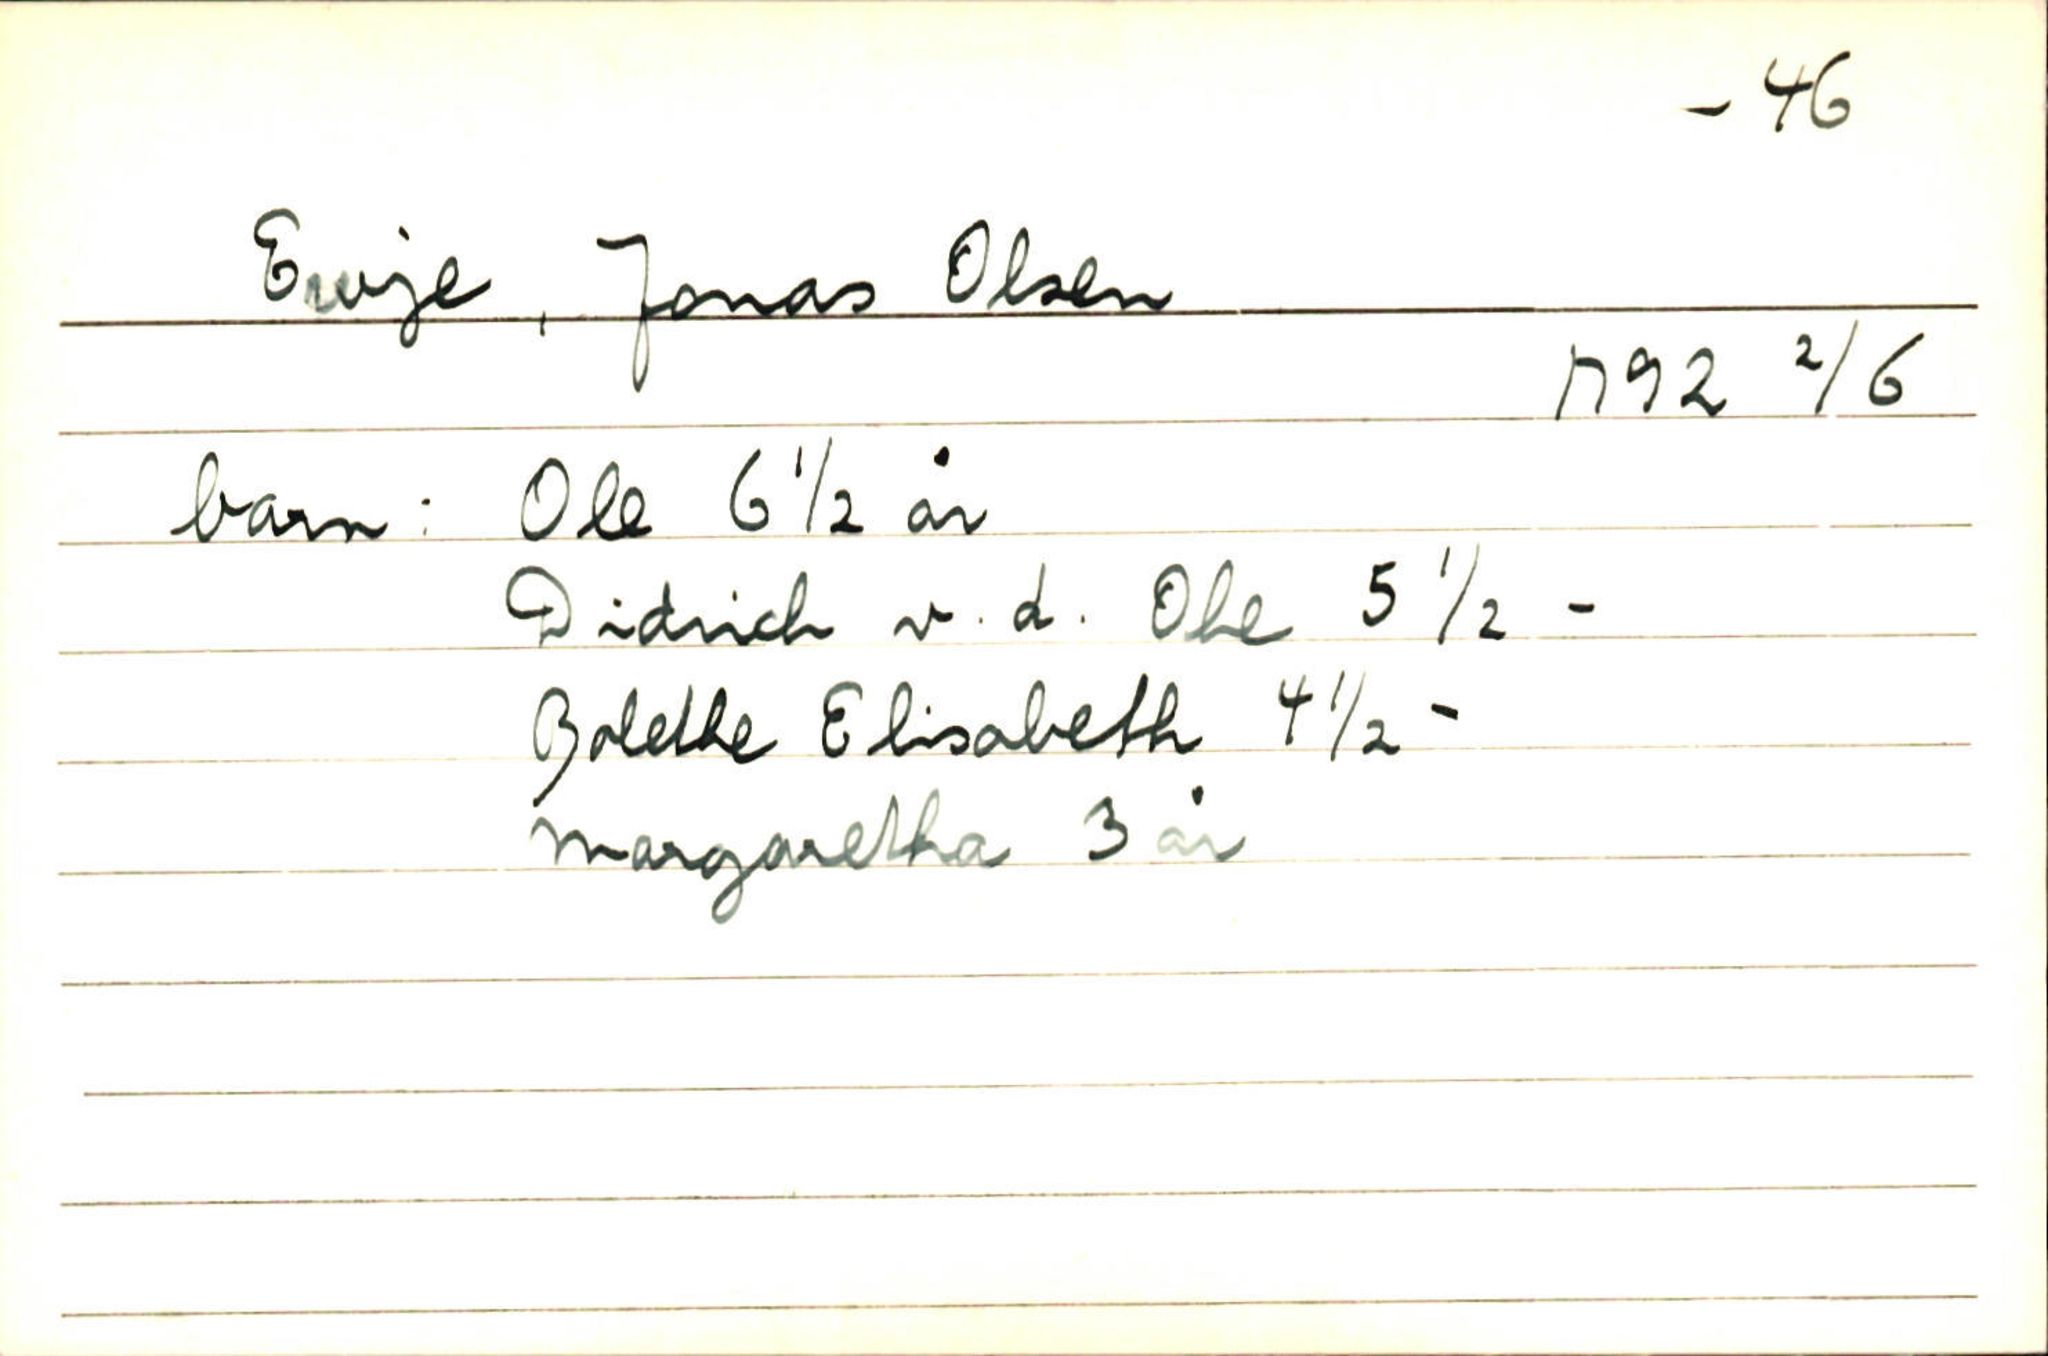 - 46
Ewje, Jonas Olsen
1792 2/6
barn: Ole 6 1/2 år
Didrich v. d. Ohe 5 1/2 -
Bolethe Elisabeth 4 1/2 -
Margaretha 3 år